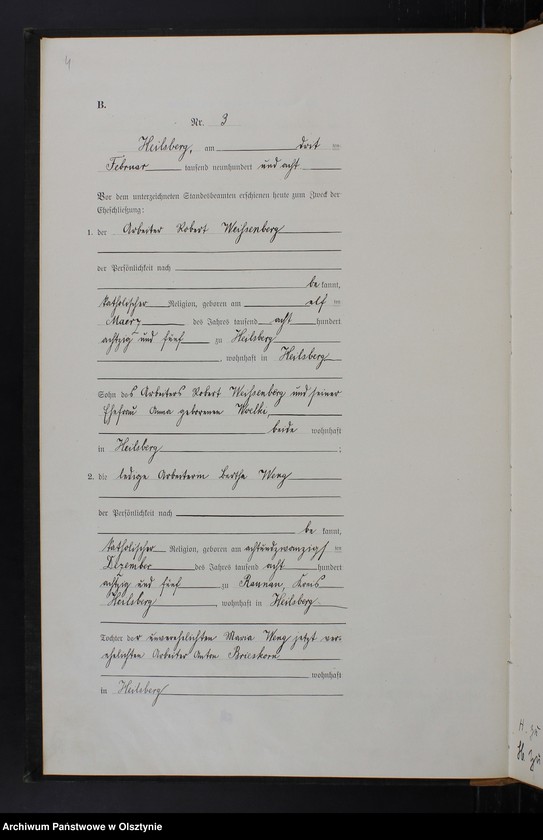 4
B.
Nr. 3
Heilsberg, am dritten
Februar tausend neunhundert und acht
Vor dem unterzeichneten Standesbeamten erschienen heute zum Zweck der
Eheschließung:
1. der Arbeiter Robert Weihsenberg
der Persönlichkeit nach
be kannt,
katholischer Religion, geboren am elf ten
Maerz des Jahres tausend acht hundert
achtzig und fünf zu Heilsberg
, wohnhaft in Heilsberg
Sohn des Arbeiters Robert Weihsenberg und seiner
Ehefrau Anna geborenen Woelke,
beide wohnhaft
in Heilsberg ;
2. die ledige Arbeiterin Bertha Weng
der Persönlichkeit nach
be kannt,
katholischer Religion, geboren am achtundzwanzigs ten
Dezember des Jahres tausend acht hundert
achtzig und fünf zu Raunau, Kreis
Heilsberg , wohnhaft in Heilsberg
Tochter der unverehelichten Maria Weng jetzt ver-
ehelichten Arbeiter Anton Brieskorn
wohnhaft
in Heilsberg
H. zu
Archiwum Państwowe w Olsztynie